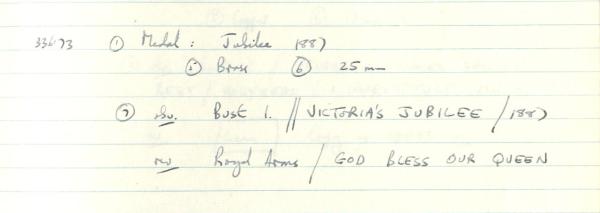 33673 ① Medal: Jubilee 1887
⑤ Brass ⑥ 25mm
⑦ obv. BUST l. // VICTORIA'S JUBILEE / 1887
rev Royal Arms / GOD BLESS OUR QUEEN